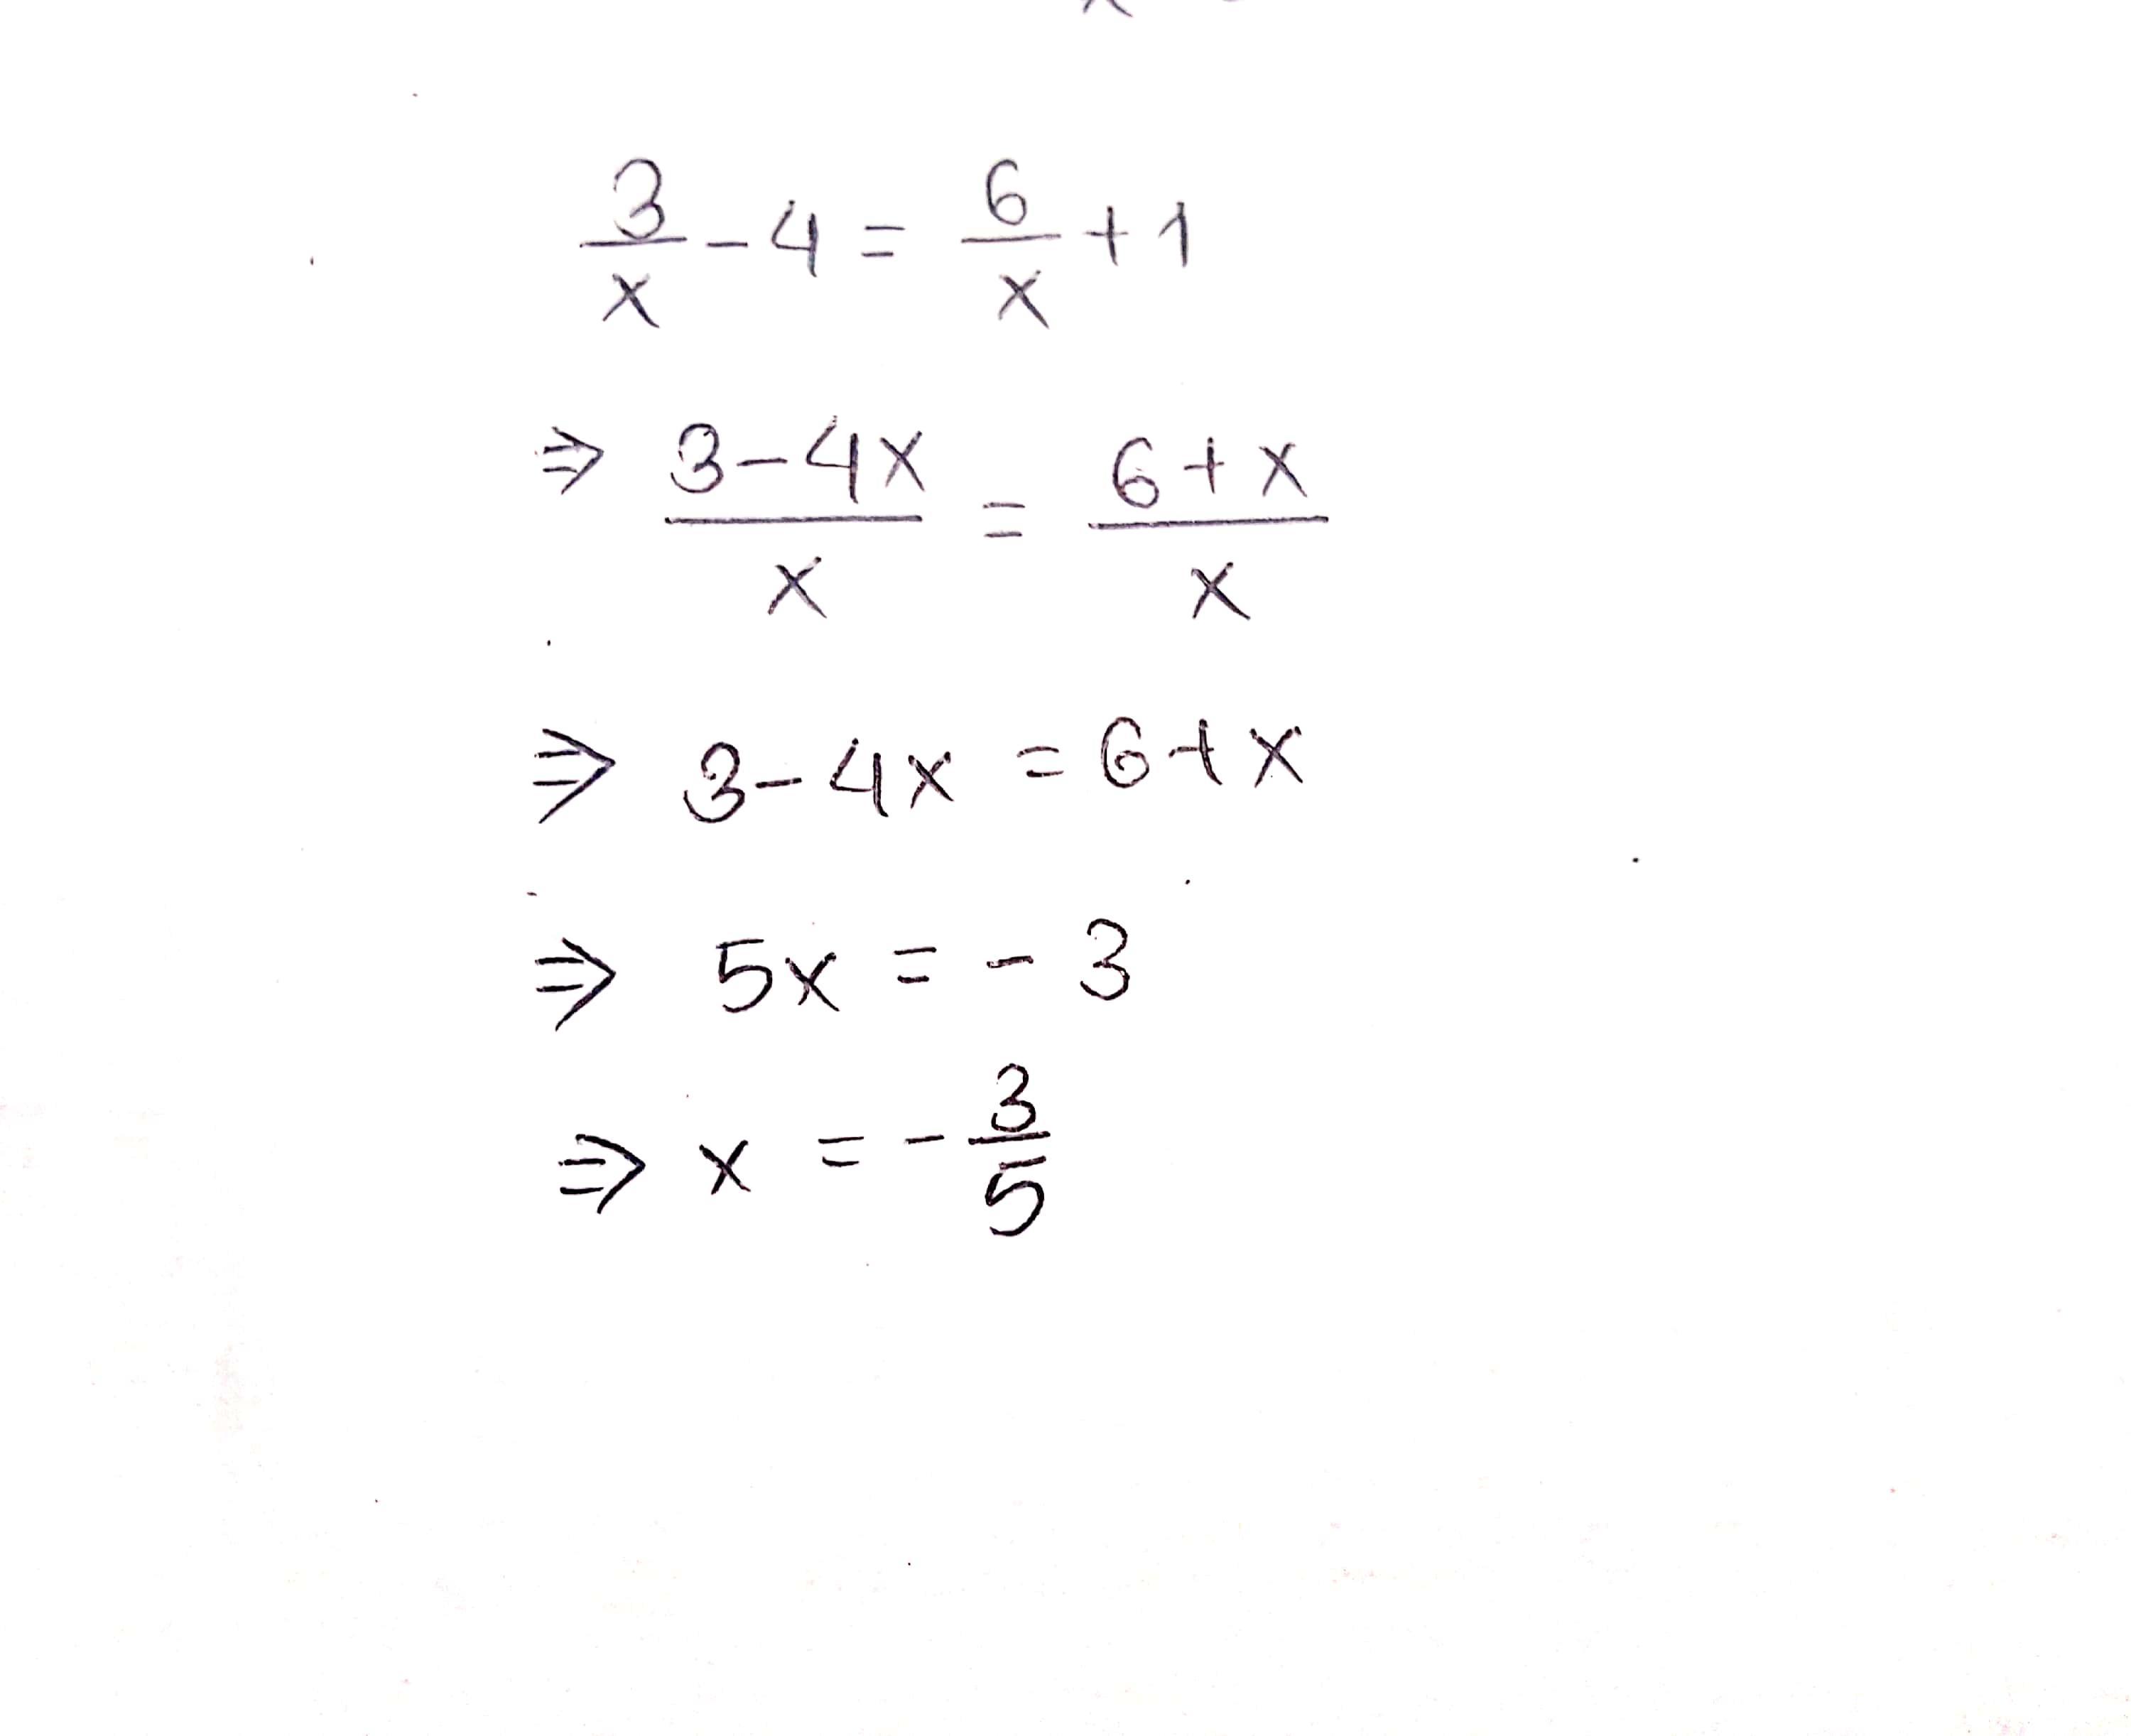 3/x - 4 = 6/x + 1
⇒ (3-4x)/x = (6+x)/x
⇒ 3-4x = 6+x
⇒ 5x = -3
⇒ x = -3/5